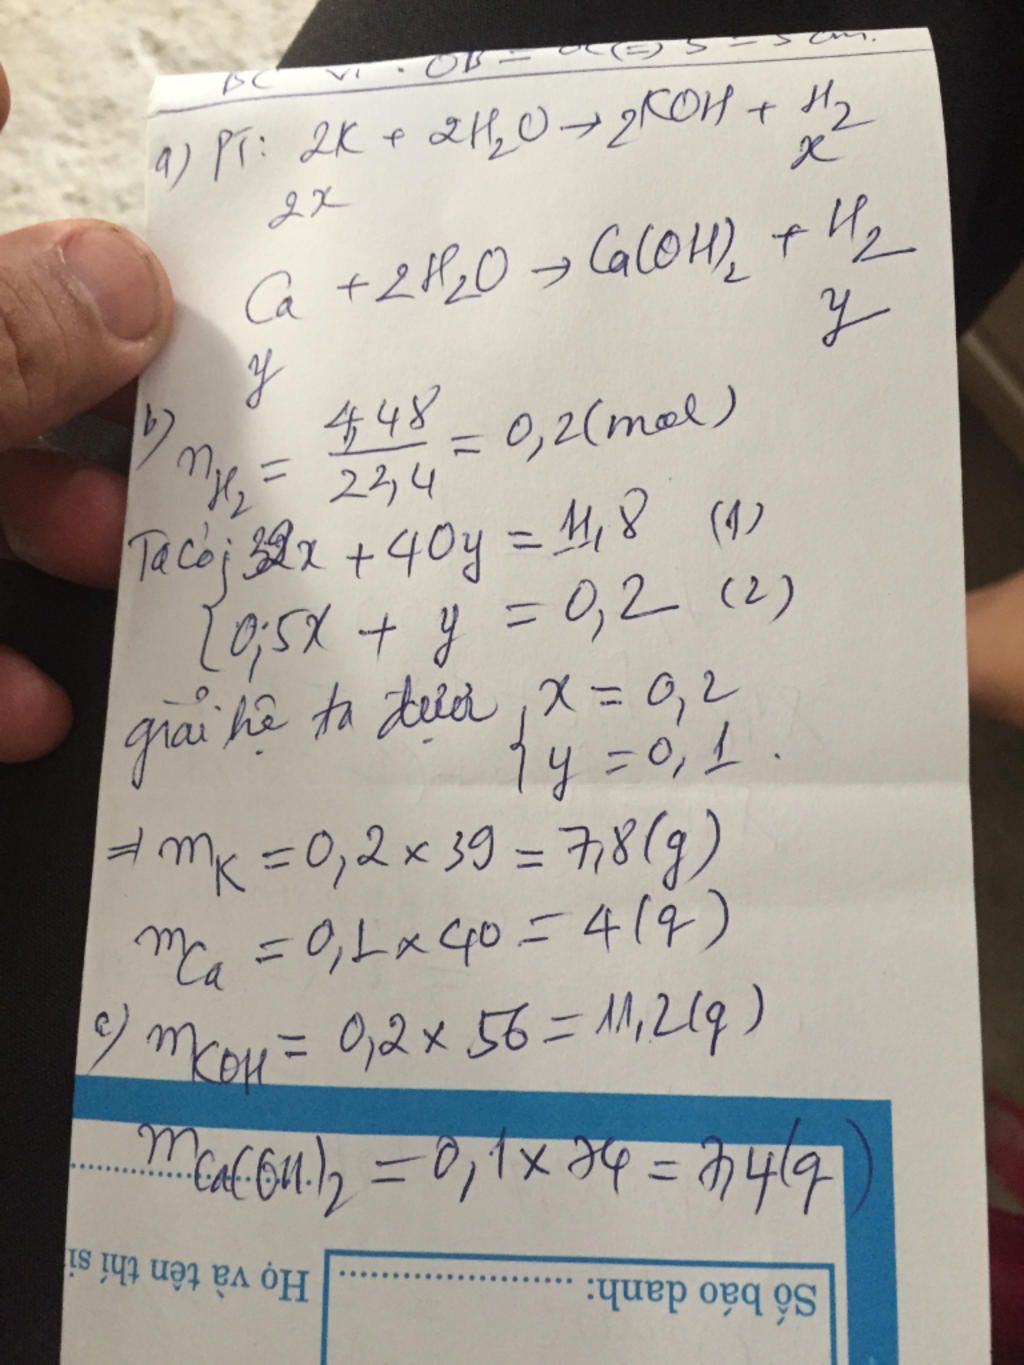 BC OB = 5 = 5 cm.
a) PT: 2K + 2H₂O → 2KOH + H₂
2x x
Ca + 2H₂O → Ca(OH)₂ + H₂
y y
b) nH₂ = 4,48/22,4 = 0,2 (mol)
Ta có; 39x + 40y = 11,8 (1)
{0,5x + y = 0,2 (2)
giải hệ ta được {x = 0,2
y = 0,1.
⇒ mK = 0,2 × 39 = 7,8 (g)
mCa = 0,1 × 40 = 4 (g)
c) mKOH = 0,2 × 56 = 11,2 (g)
mCa(OH)₂ = 0,1 × 74 = 7,4 (g)
Số báo danh: ........................
Họ và tên thí si